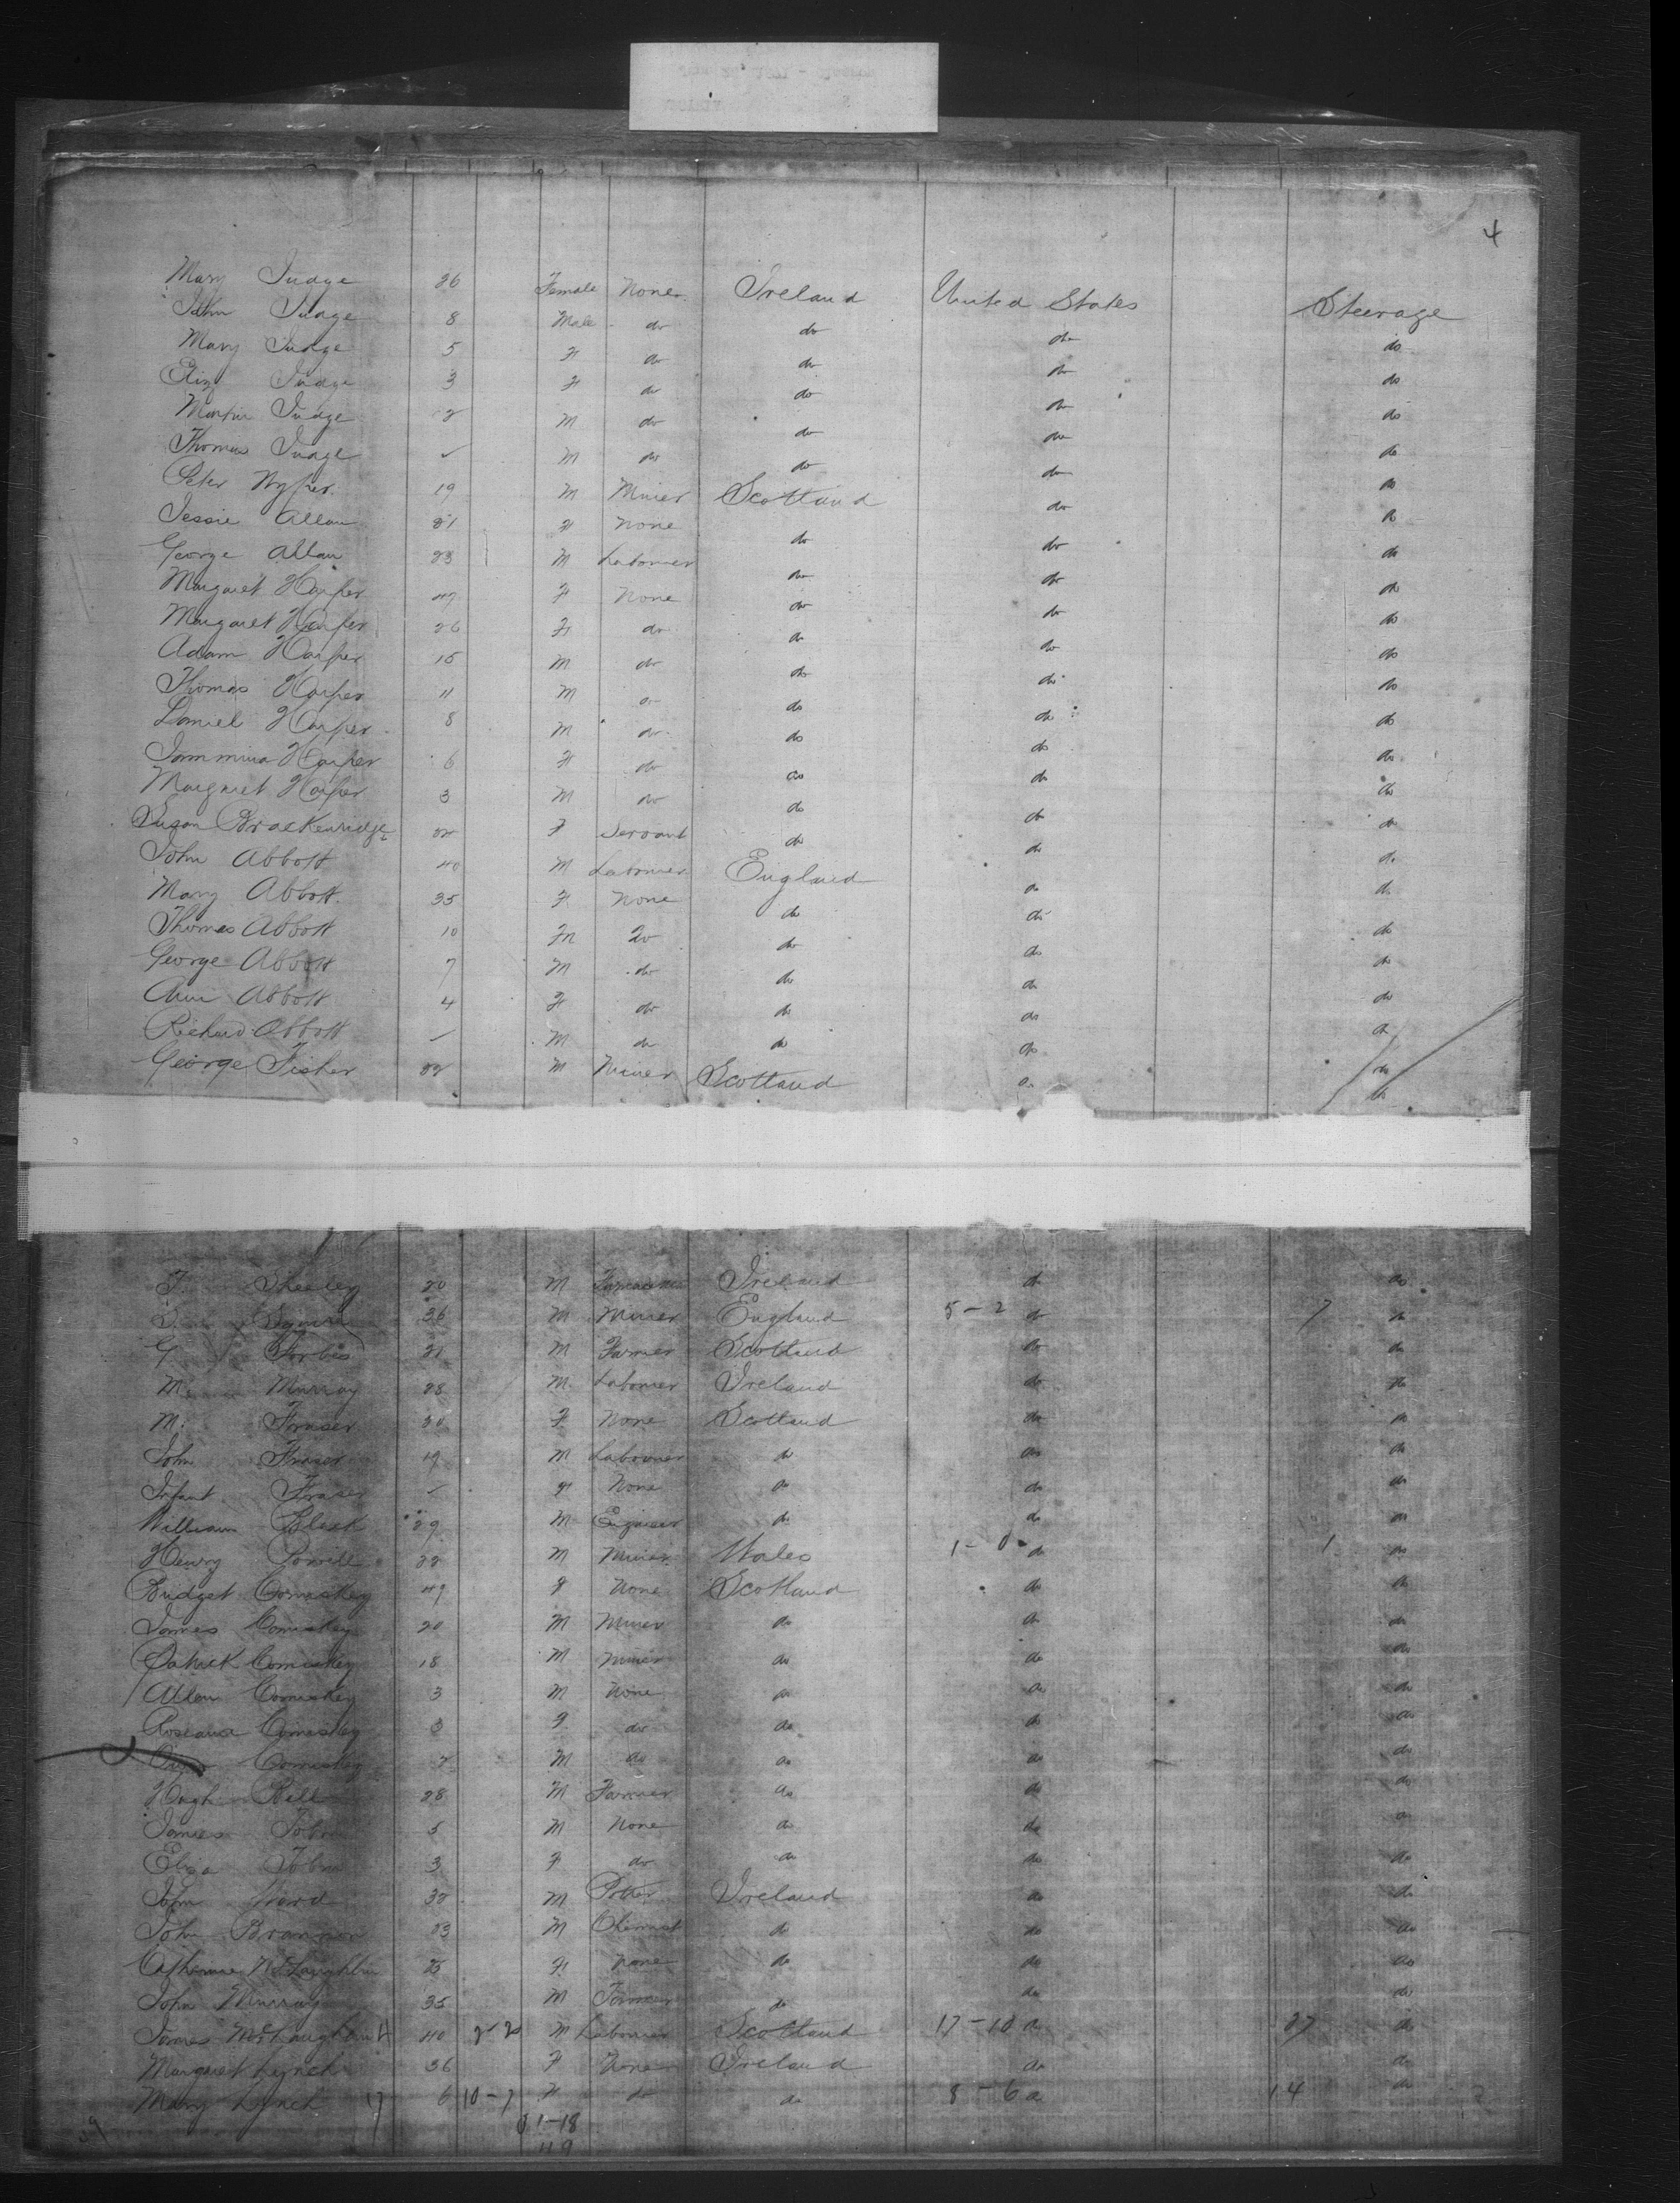 4
Mary Judge 26 Female None Ireland United States Steerage
John Judge 8 Male do do do do
Mary Judge 5 F do do do do
Eliz Judge 3 F do do do do
Martin Judge 2 M do do do do
Thomas Judge ✓ M do do do do
Peter 19 M Miner Scotland do do
Jessie Allan 21 F None do do do
George Allan 23 M Labourer do do do
Margaret Harper 47 F None do do do
Margaret Harper 26 F do do do do
Adam Harper 15 M do do do do
Thomas Harper 11 M do do do do
Daniel Harper 8 M do do do do
Jammina Harper 6 F do do do do
Margaret Harper 3 M do do do do
Susan Brackenridge F Servant do do do
John Abbott 40 M Labourer England do do
Mary Abbott 35 F None do do do
Thomas Abbott 10 M do do do do
George Abbott 7 M do do do do
Ann Abbott 4 F do do do do
Richard Abbott ✓ M do do do do
George Fisher 22 M Miner Scotland do do
T. Sheeley 20 M Ireland do do
36 M Miner England 5-2 do 7 do
G Forbes 21 M Farmer Scotland do do
M. Murray 28 M Labourer Ireland do do
M. Fraser 30 F None Scotland do do
John Fraser 19 M Labourer do do do
Infant Fraser ✓ F None do do do
William 29 M Engineer do do do
Henry Powell 22 M Miner Wales 1-0 do 1 do
Bridget Comiskey 49 F None Scotland do do
James Comiskey 20 M Miner do do do
Patrick Comiskey 18 M Miner do do do
Allen Comiskey 3 M None do do do
Roseann Comiskey 3 F do do do do
Comiskey 2 M do do do do
Hugh Bell 28 M Farmer do do do
James Tobin 5 M None do do do
Eliza Tobin 3 F do do do do
John Ward 32 M Potter Ireland do do
John Brannan 23 M Chemist do do do
Catherine McLaughlin 25 F None do do do
John Murray 35 M Farmer do do do
James McLaughlin 40 2-20 M Labourer Scotland 17-10 do 27 do
Margaret Lynch 36 F None Ireland do do
Mary Lynch 17 6 10-7 F do do 8-6 do 14 do
31-18
49